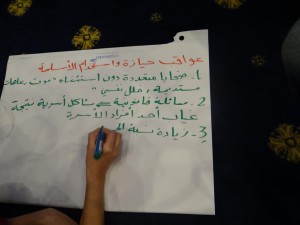 عواقب حيازة واستخدام الأسلحة
1. ضحايا متعددة دون استثناء "موت، إعاقات
مستديمة، خلل نفسي"
2. مسائلة قانونية مشاكل أسرية نتيجة
غياب أحد أفراد الأسرة
3. زيادة نسبة